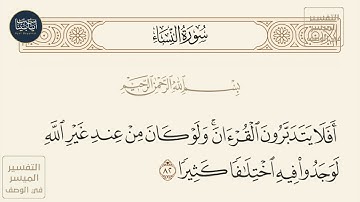 سُورَةُ النِّسَاءِ
بِسْمِ اللَّهِ الرَّحْمَٰنِ الرَّحِيمِ
أَفَلَا يَتَدَبَّرُونَ الْقُرْءَانَ ۚ وَلَوْ كَانَ مِنْ عِندِ غَيْرِ اللَّهِ
لَوَجَدُوا۟ فِيهِ اخْتِلَٰفًا كَثِيرًا ٨٢
التفسير
الميسر
في الوصف
التفسير
الميسر
في الوصف